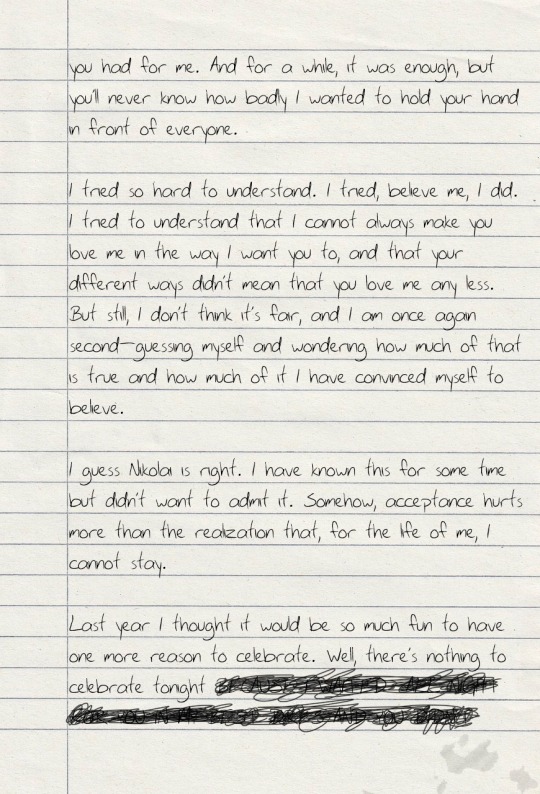 you had for me. And for a while, it was enough, but
you'll never know how badly I wanted to hold your hand
in front of everyone.
I tried so hard to understand. I tried, believe me, I did.
I tried to understand that I cannot always make you
love me in the way I want you to, and that your
different ways didn't mean that you love me any less.
But still, I don't think it's fair, and I am once again
second-guessing myself and wondering how much of that
is true and how much of it I have convinced myself to
believe.
I guess Nikolai is right. I have known this for some time
but didn't want to admit it. Somehow, acceptance hurts
more than the realization that, for the life of me, I
cannot stay.
Last year I thought it would be so much fun to have
one more reason to celebrate. Well, there's nothing to
celebrate tonight